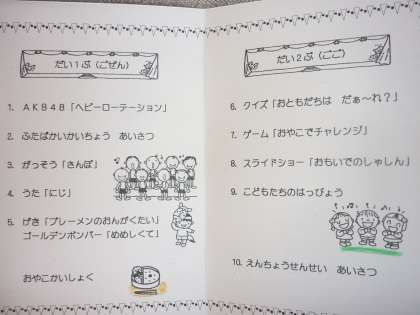 だい１ぶ（ごぜん）
1. ＡＫＢ４８「ヘビーローテーション」
2. ふたばかいかいちょう　あいさつ
3. がっそう「さんぽ」
4. うた「にじ」
5. げき「ブレーメンのおんがくたい」
ゴールデンボンバー「めめしくて」
おやこかいしょく
だい２ぶ（ごご）
6. クイズ「おともだちは　だぁ～れ？」
7. ゲーム「おやこでチャレンジ」
8. スライドショー「おもいでのしゃしん」
9. こどもたちのはっぴょう
10. えんちょうせんせい　あいさつ